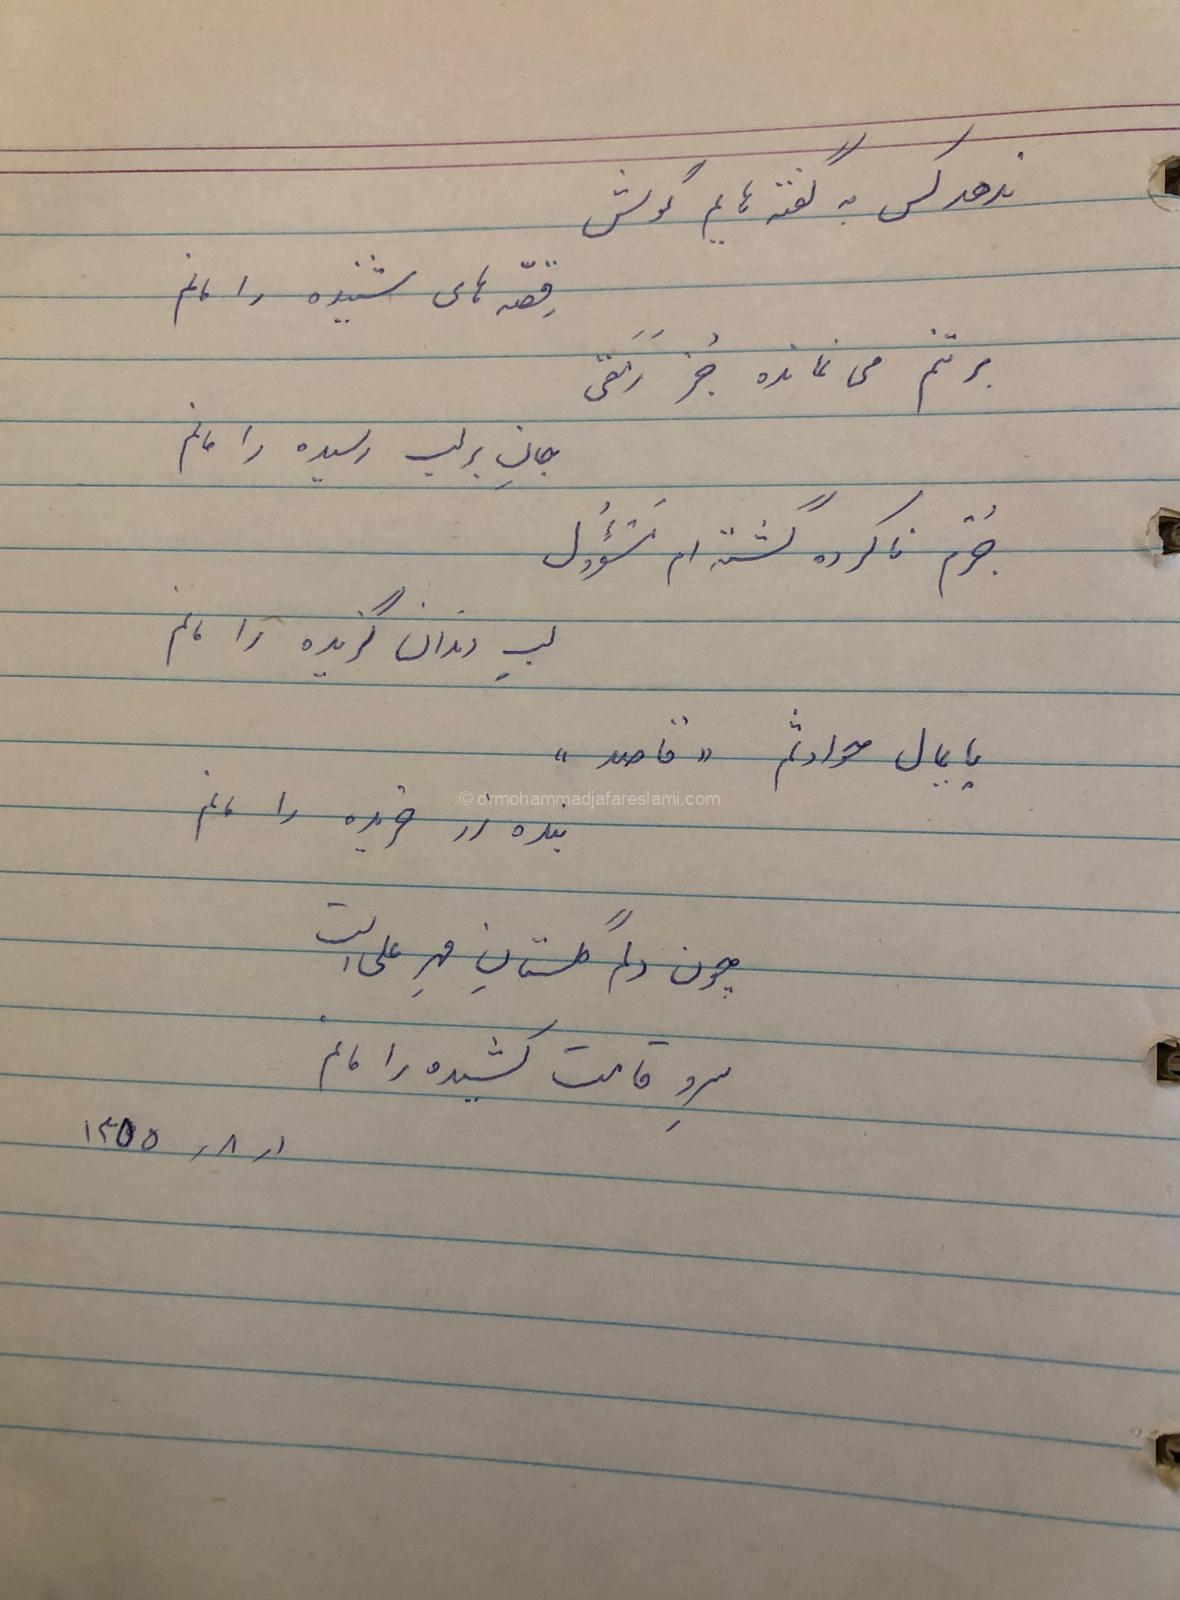 ندهد کس به گفته هایم گوش
قِصّه های شنیده را مانم
بر تنم می نمانده جُز رَمَقی
جانِ بر لب رسیده را مانم
جُرم ناکرده گشته ام مَسؤُول
لبِ دندان گزیده را مانم
پایمال حوادثم «قاصد»
بنده زر خریده را مانم
چون دلم گلستانِ مهرِ علی است
سروِ قامت کشیده را مانم
۱ر۸ر ۱۳۵۵
© drmohammadjafareslami.com